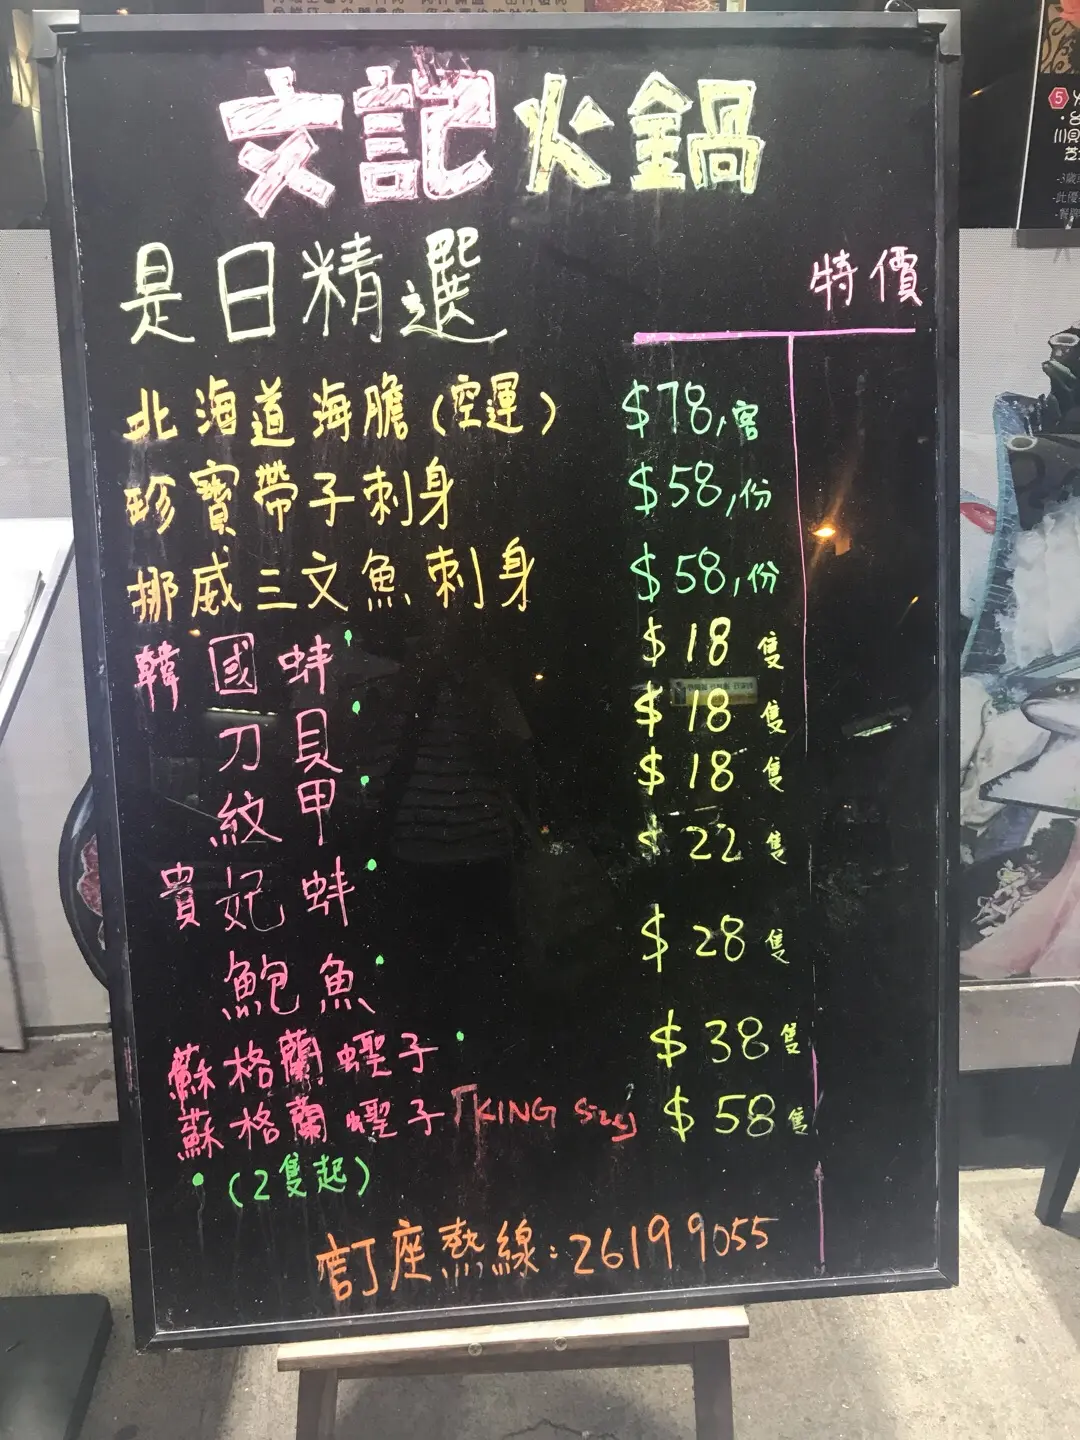 文記火鍋
是日精選
特價
北海道海膽(空運) $78,客
珍寶帶子刺身 $58,份
挪威三文魚刺身 $58,份
韓國蚌 $18隻
刀貝 $18隻
紋甲 $18隻
貴妃蚌 $22隻
鮑魚 $28隻
蘇格蘭蟶子 $38隻
蘇格蘭蟶子「KING Size」 $58隻
•(2隻起)
訂座熱線:26199055
5